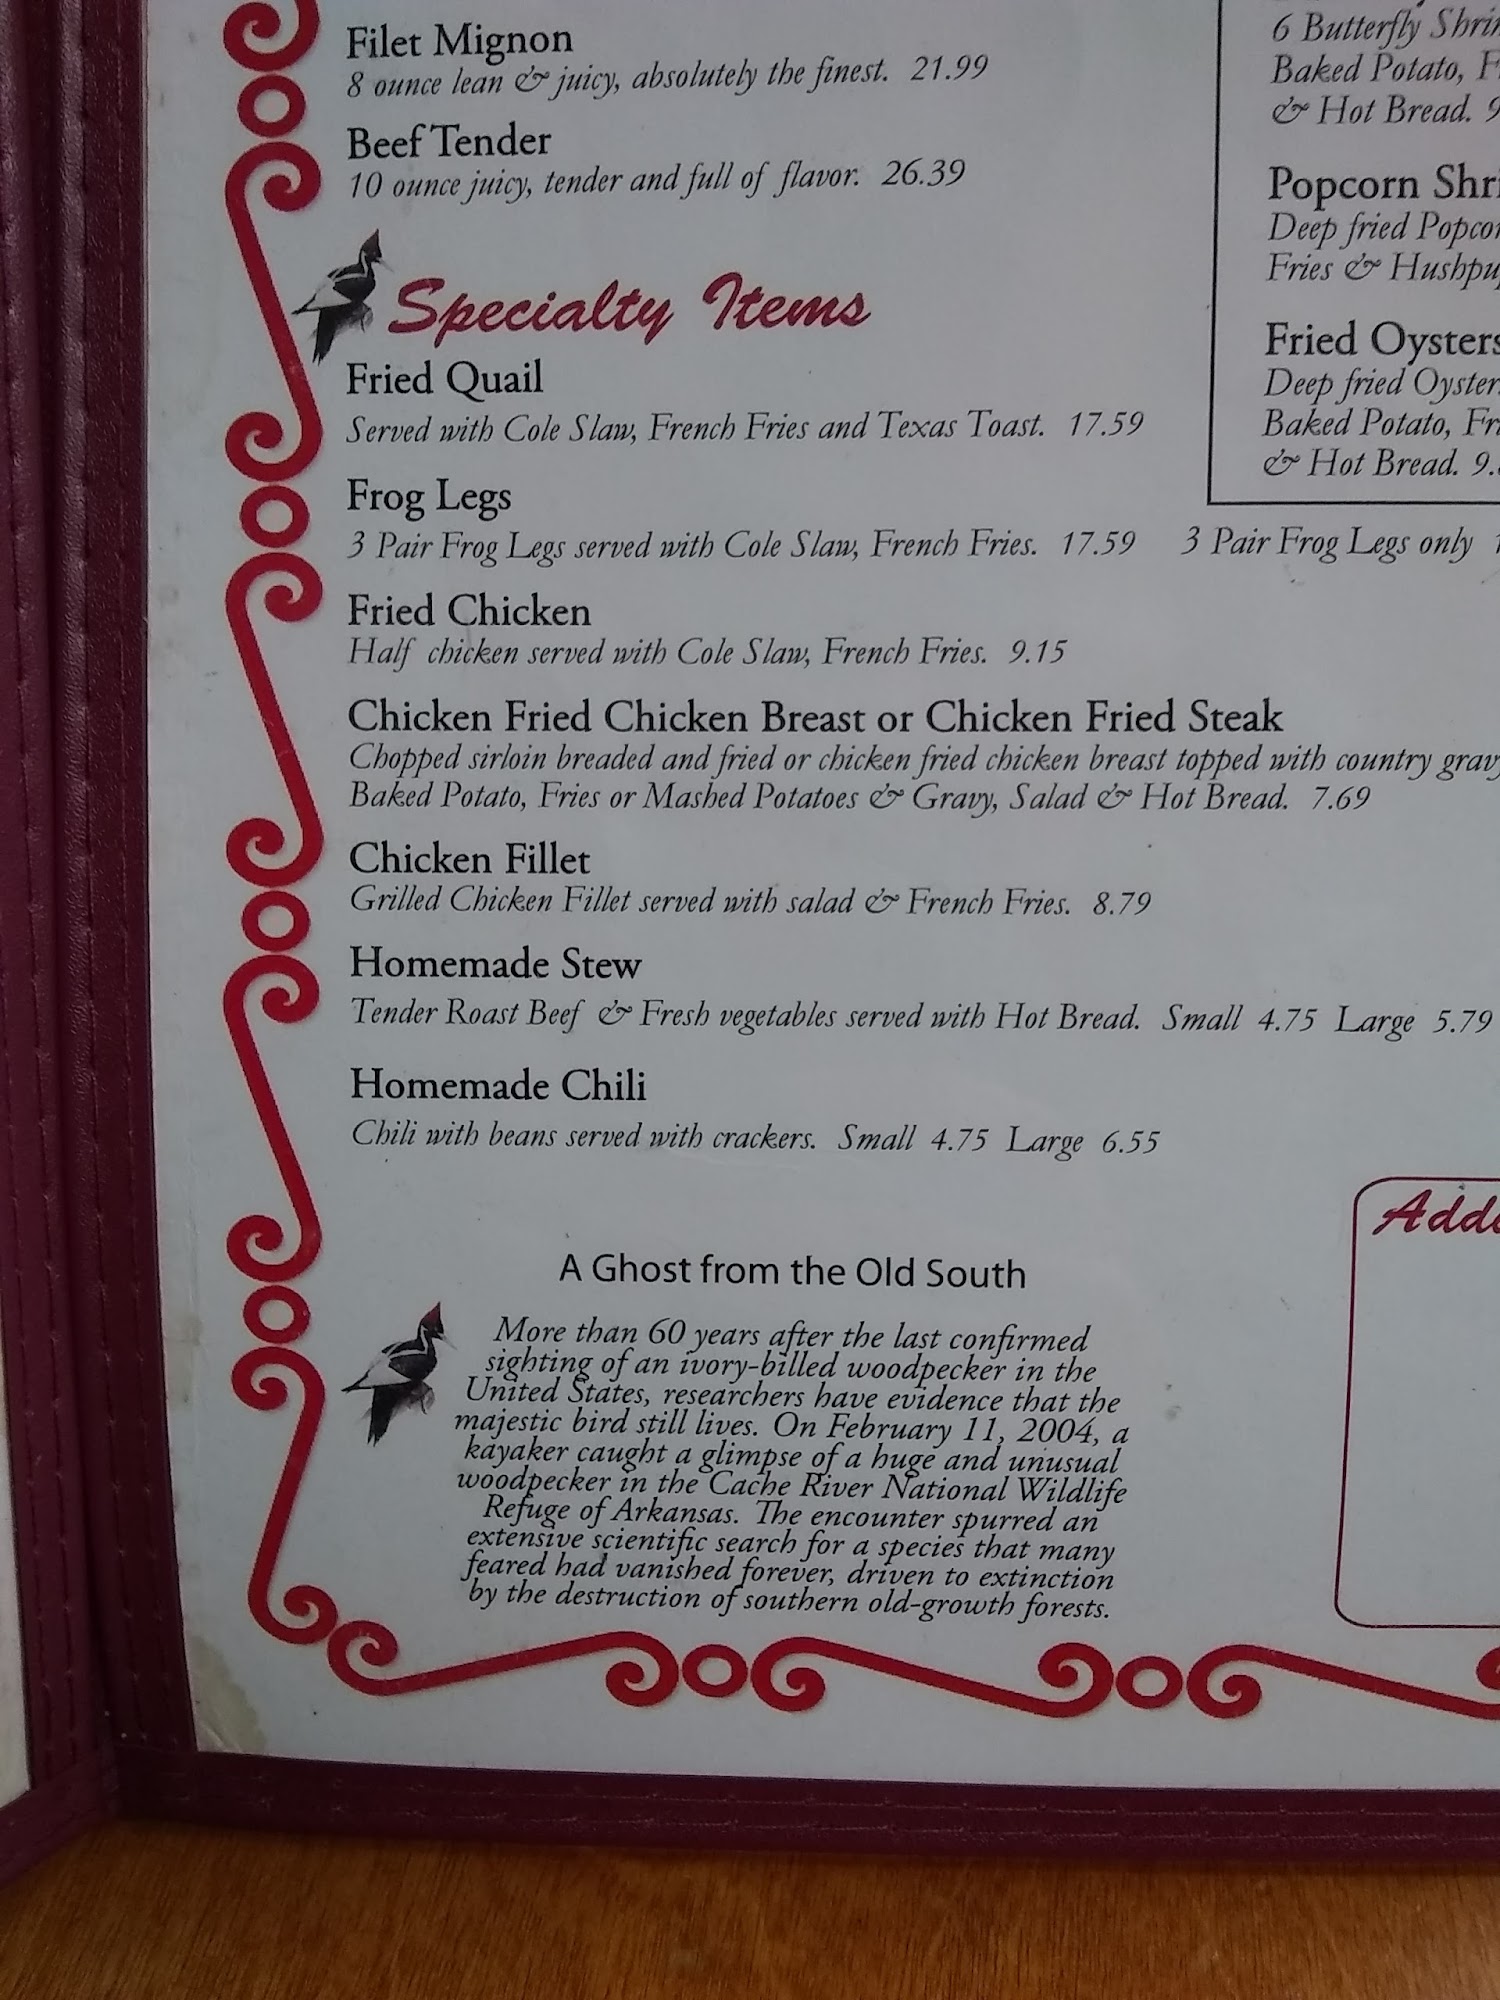 Filet Mignon
8 ounce lean & juicy, absolutely the finest. 21.99
Beef Tender
10 ounce juicy, tender and full of flavor. 26.39
Specialty Items
Fried Quail
Served with Cole Slaw, French Fries and Texas Toast. 17.59
Frog Legs
3 Pair Frog Legs served with Cole Slaw, French Fries. 17.59 3 Pair Frog Legs only
Fried Chicken
Half chicken served with Cole Slaw, French Fries. 9.15
Chicken Fried Chicken Breast or Chicken Fried Steak
Chopped sirloin breaded and fried or chicken fried chicken breast topped with country
Baked Potato, Fries or Mashed Potatoes & Gravy, Salad & Hot Bread. 7.69
Chicken Fillet
Grilled Chicken Fillet served with salad & French Fries. 8.79
Homemade Stew
Tender Roast Beef & Fresh vegetables served with Hot Bread. Small 4.75 Large 5.79
Homemade Chili
Chili with beans served with crackers. Small 4.75 Large 6.55
A Ghost from the Old South
More than 60 years after the last confirmed
sighting of an ivory-billed woodpecker in the
United States, researchers have evidence that the
majestic bird still lives. On February 11, 2004, a
kayaker caught a glimpse of a huge and unusual
woodpecker in the Cache River National Wildlife
Refuge of Arkansas. The encounter spurred an
extensive scientific search for a species that many
feared had vanished forever, driven to extinction
by the destruction of southern old-growth forests.
6 Butterfly
Baked Potato,
& Hot Bread.
Popcorn
Deep fried
Fries &
Fried Oysters
Deep fried
Baked Potato,
& Hot Bread.